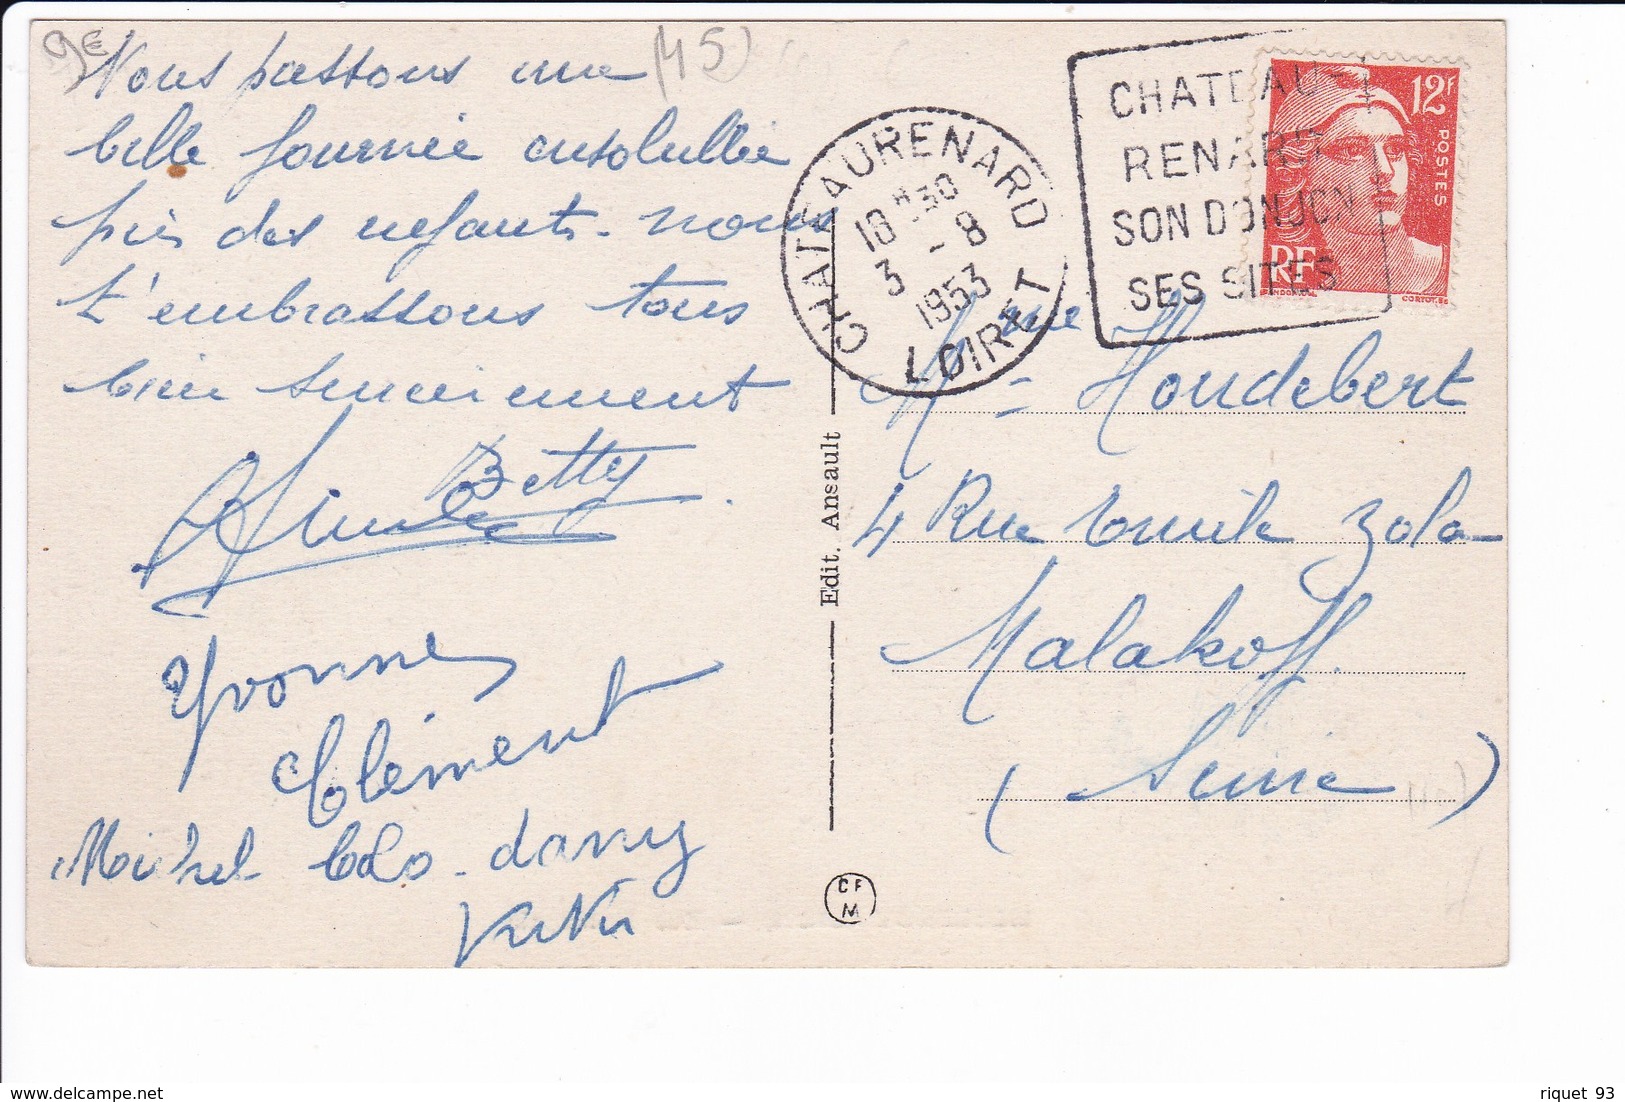 9€
(45)
Nous passons une
belle journée ensoleillée
près des enfants. nous
t'embrassons tous
bien sincèrement
Betty
Yvonne
Clément
Michel Cloclo. dany
KiKi
CHATEAURENARD
18 H 30
3 - 8
1953
LOIRET
CHATEAU-
RENARD
SON DONJON
SES SITES
12F
POSTES
RF
GANDON
CORTOT. SC
Edit. Ansault
CF
M
Mme Houdebert
4 Rue Emile Zola
Malakoff.
(Seine)
riquet 93